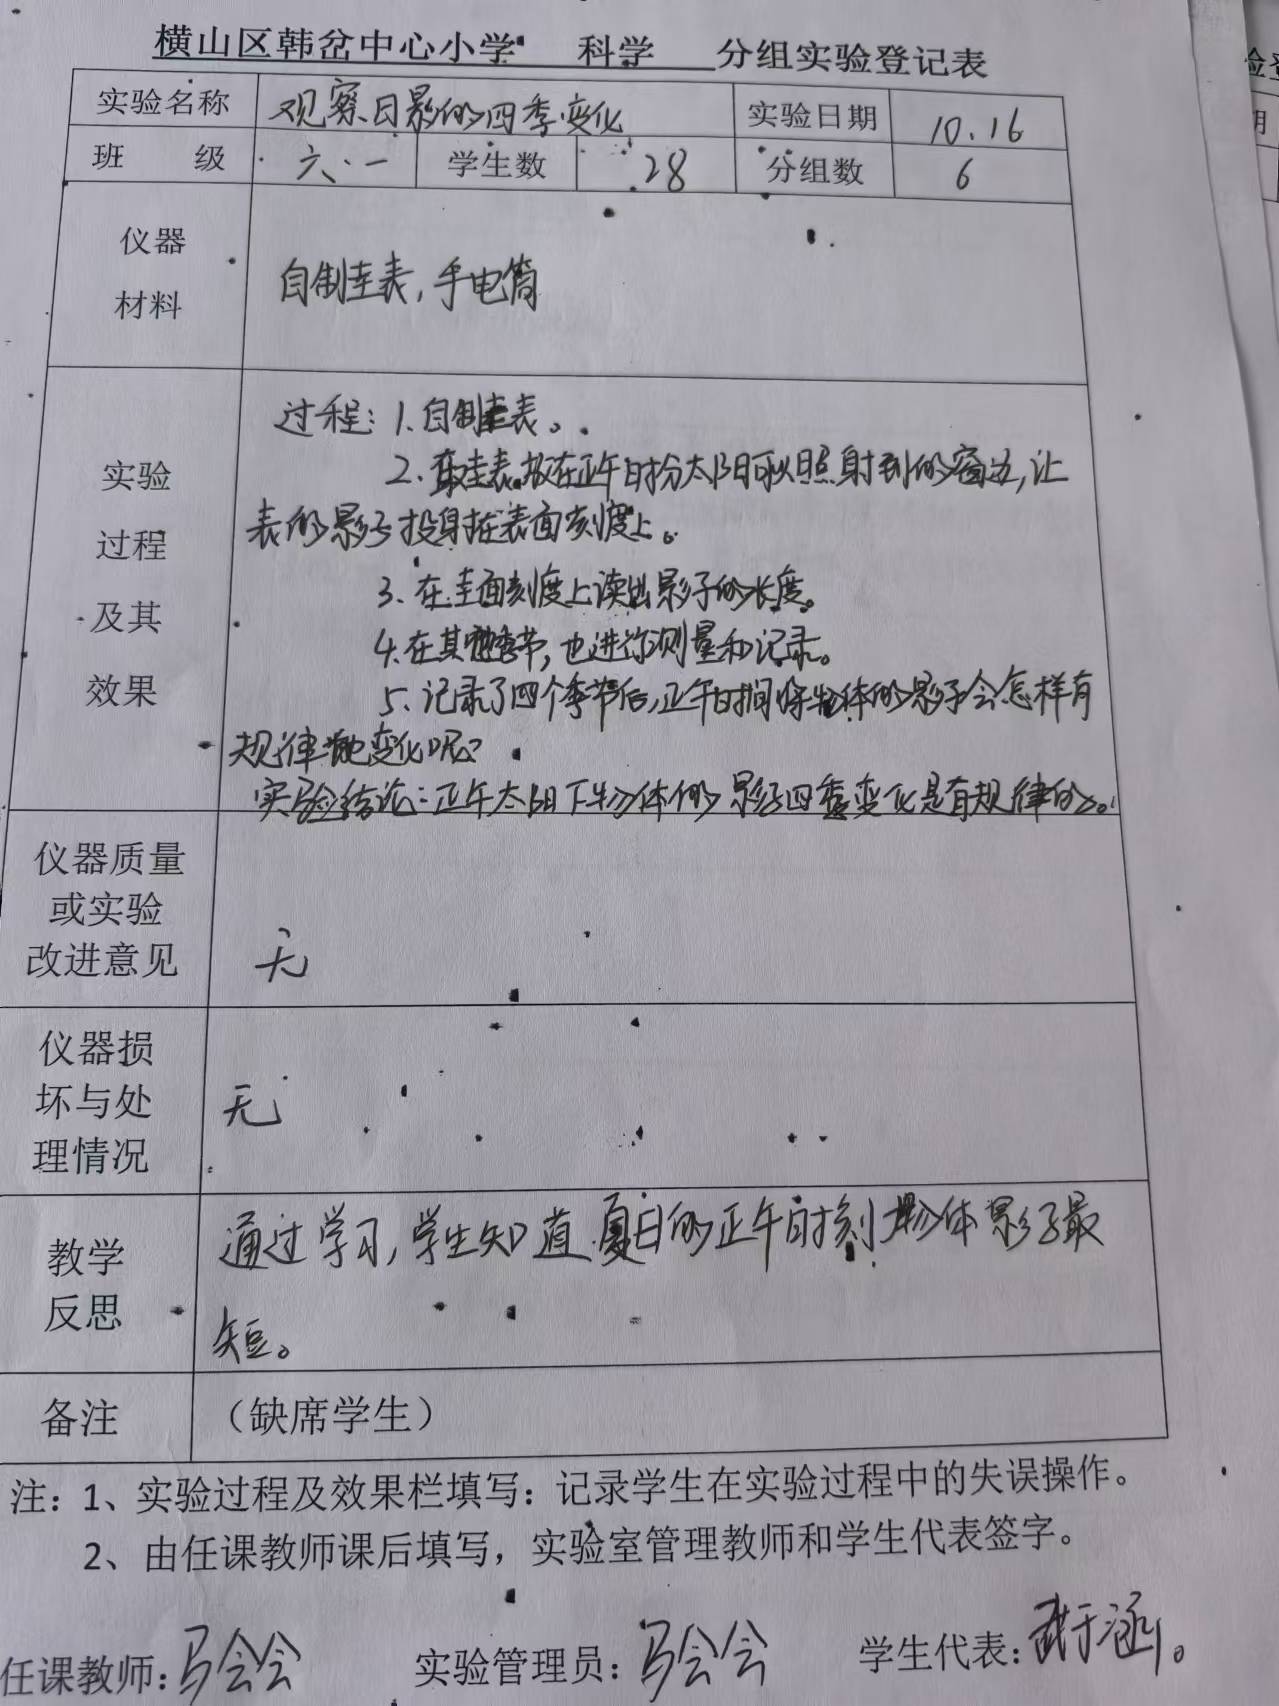 横山区韩岔中心小学 科学 分组实验登记表
实验名称 观察日影的四季变化 实验日期 10.16
班 级 六、一 学生数 28 分组数 6
仪器
材料
自制圭表,手电筒
实验
过程
及其
效果
过程:1.自制圭表。
2.取圭表放在正午时分太阳可以照射到的窗边,让
表的影子投身在表面刻度上。
3、在圭面刻度上读出影子的长度。
4.在其他季节,也进行测量和记录。
5、记录了四个季节后,正午时间物体的影子会怎样有
规律地变化呢?
实验结论:正午太阳下物体的影子四季变化是有规律的。
仪器质量
或实验
改进意见
无
仪器损
坏与处
理情况
无
教学
反思
通过学习,学生知道夏日的正午时刻物体影子最
短。
备注 (缺席学生)
注:1、实验过程及效果栏填写:记录学生在实验过程中的失误操作。
2、由任课教师课后填写,实验室管理教师和学生代表签字。
任课教师:马会会 实验管理员:马会会 学生代表: